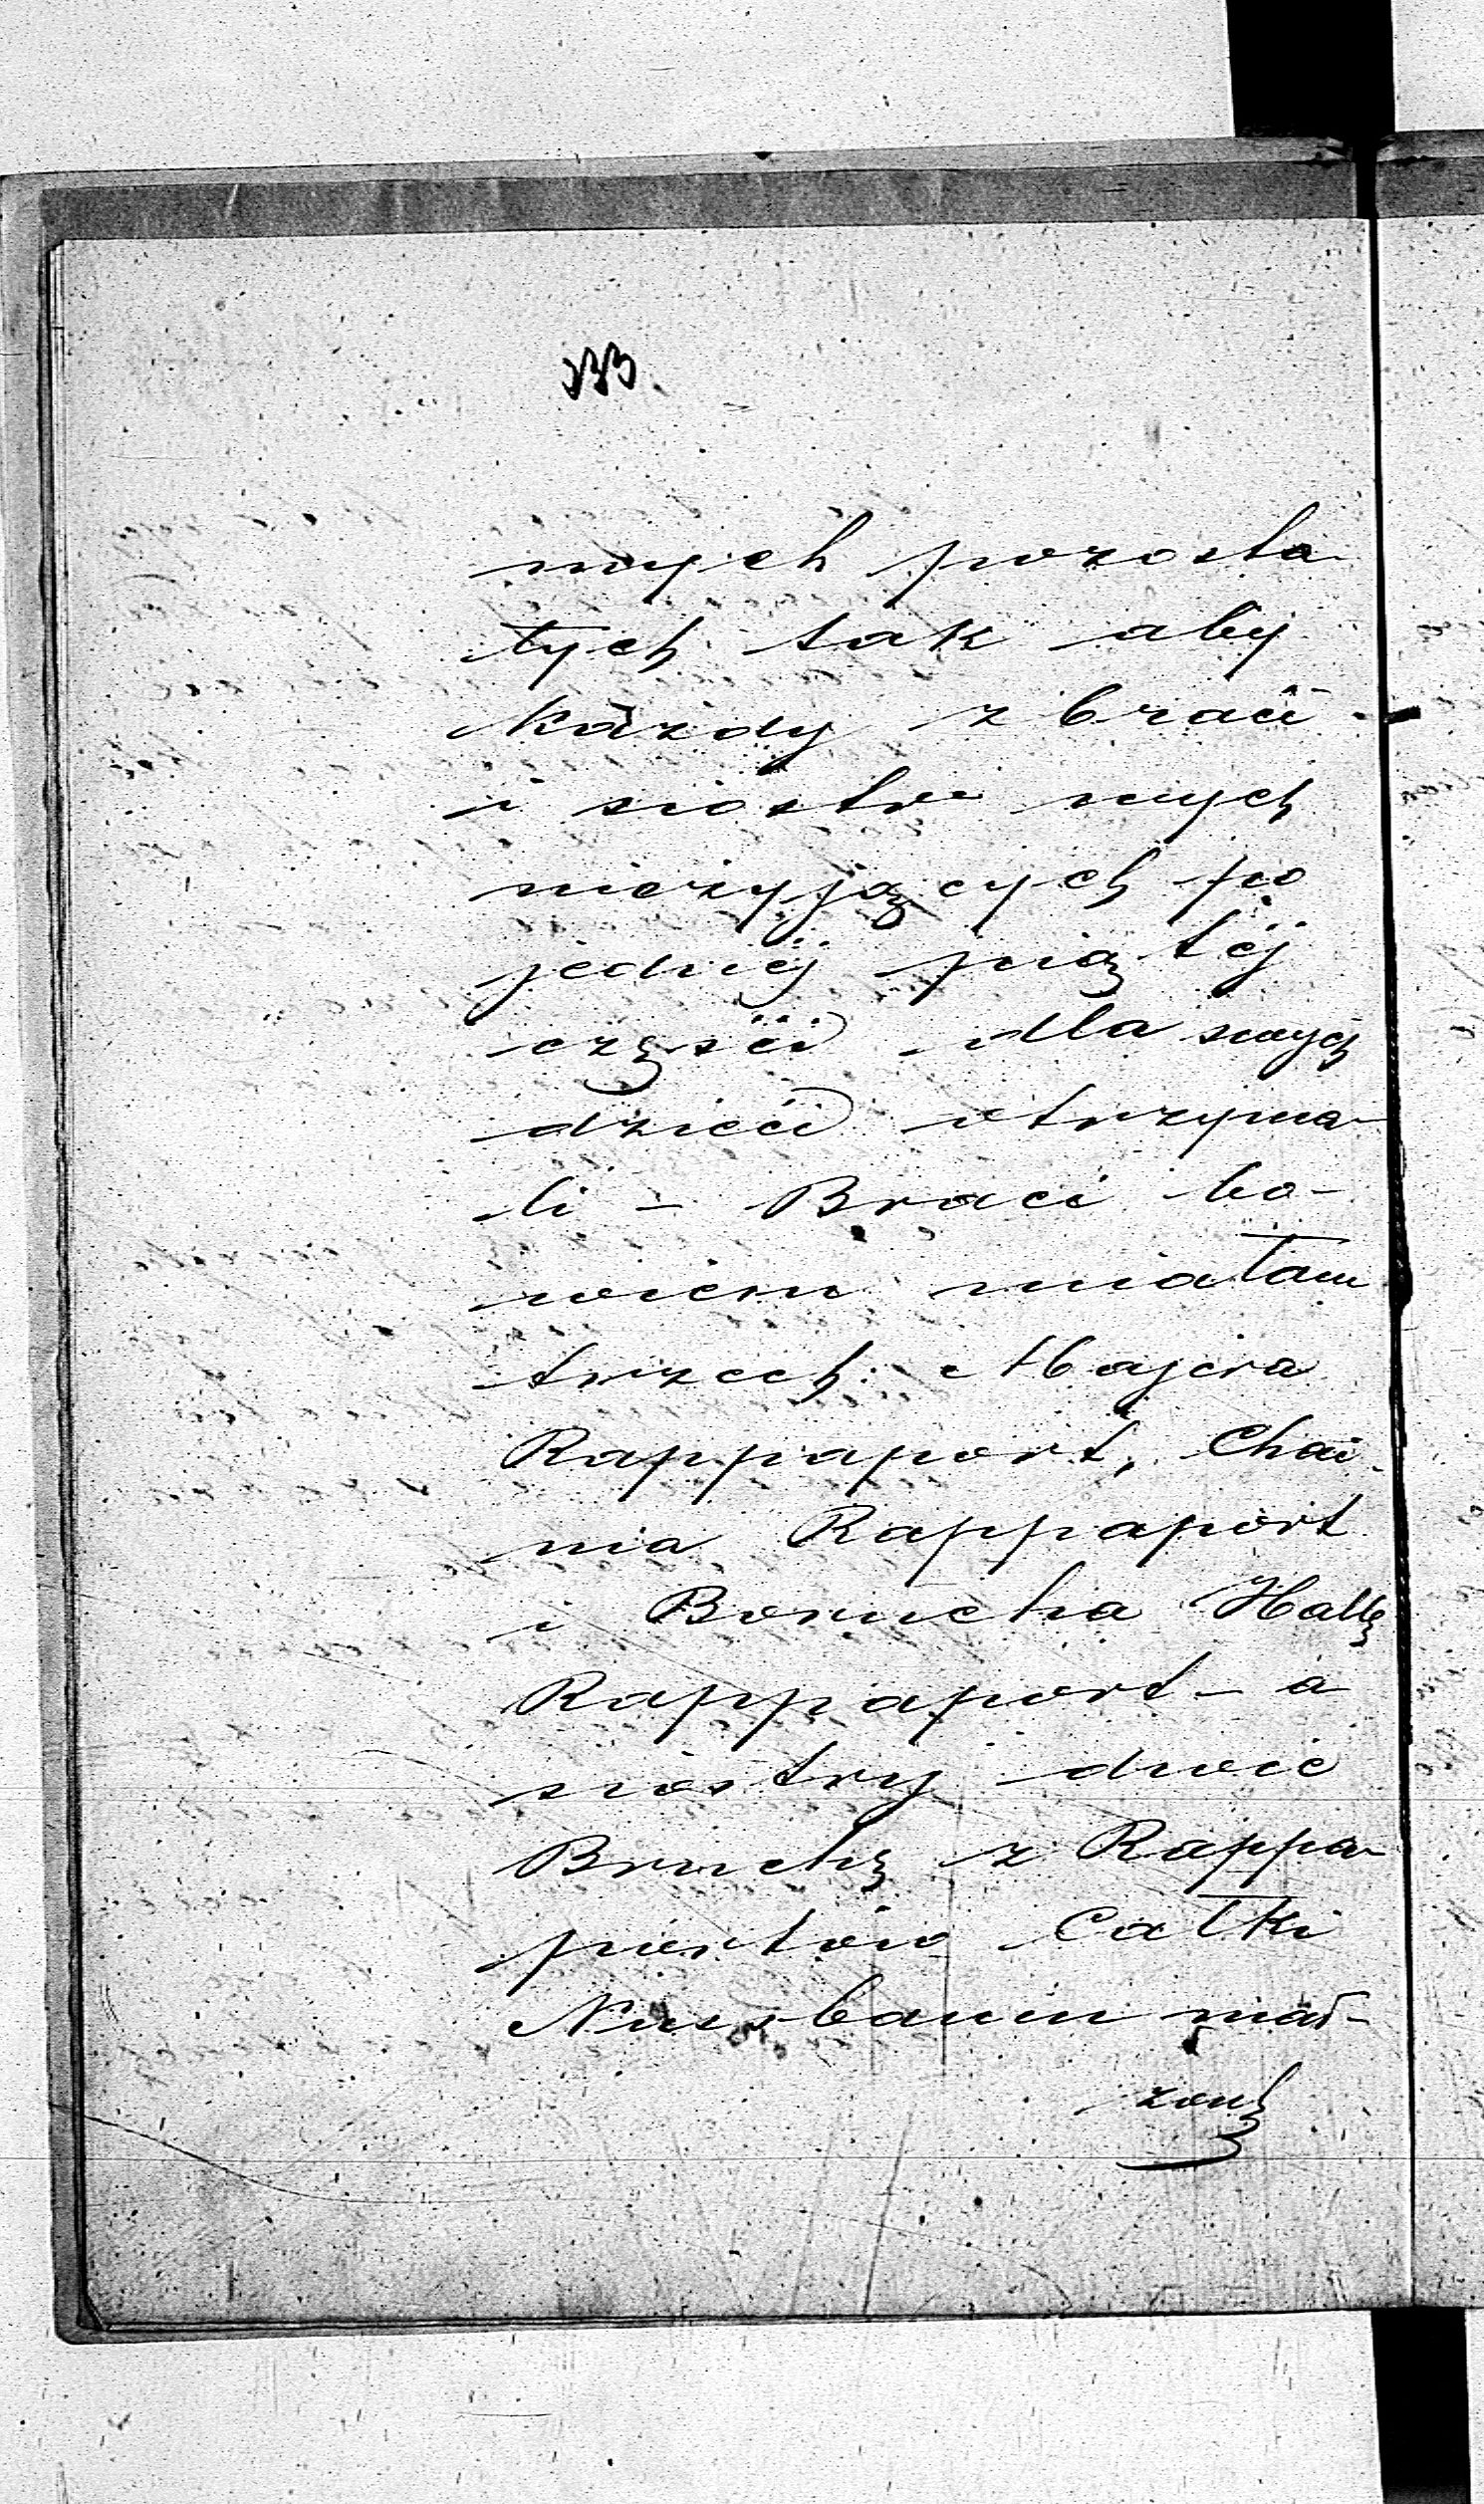 333.
mych pozosta-
łych tak aby
każdy z braci
i siostr mych
nieżyjących po
jednéj piątéj
części dla swych
dzieci otrzyma-
li – Braci bo-
wiem miałam
trzech: Majera
Rappaport, Chai-
ma Rappaport
i Borucha
Rappaport – a
siostry dwie
Bruchę z Rappa-
portów Całki
Nussbaum mał-
żonkę